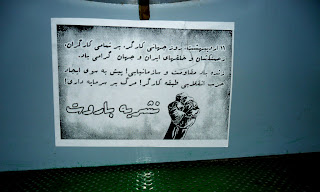 ۱۱ اردیبهشت، روز جهانی کارگر، بر تمامی کارگران،
زحمتکشان و خلقهای ایران و جهان گرامی باد.
زنده باد مقاومت و سازمانیابی! پیش به سوی ایجاد
حزب انقلابی طبقه کارگر! مرگ بر سرمایه داری!
نشریه باروت